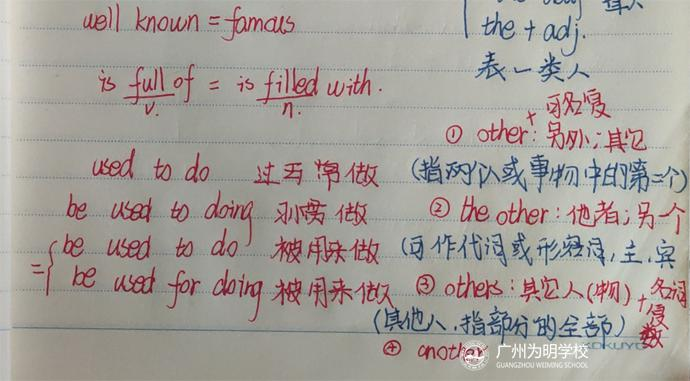 well known = famous
is full of = is filled with.
v. n.
used to do 过去常做
be used to doing 习惯做
= { be used to do 被用来做
be used for doing 被用来做
the + adj.
表一类人
+ 可名复
① other: 另外；其它
(指两个人或事物中的第二个)
② the other: 他者；另一个
(可作代词或形容词，主，宾
③ others: 其它人(物) + 名词复数
(其他人，指部分的全部)
④ another
KOKUYO
广州为明学校
GUANGZHOU WEIMING SCHOOL